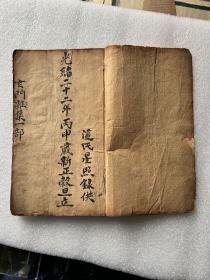 光緒二十二年丙申歲新正穀旦立
道氏星照錄供
玄門雜集一部